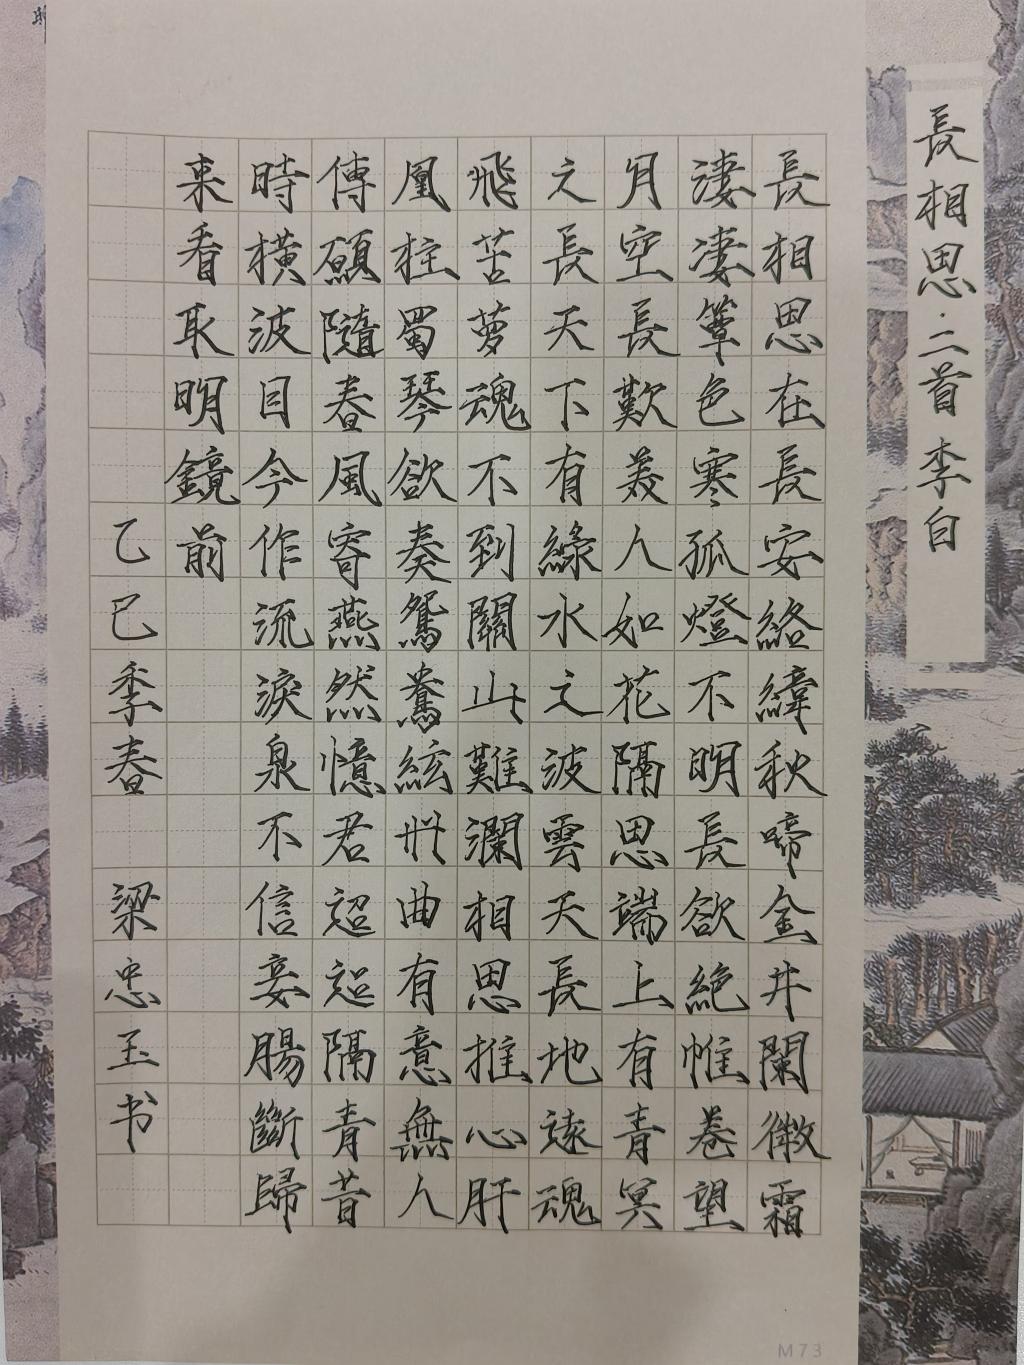 長相思·二首 李白
長相思在長安絡緯秋啼金井闌微霜
淒凄簟色寒孤燈不明長欲絕帷卷望
月空長歎美人如花隔思端上有青冥
之長天下有綠水之波雲天長地遠魂
飛苦夢魂不到關山難瀾相思摧心肝
凰柱蜀琴欲奏鴛鴦絃艸曲有意無人
傳願隨春風寄燕然憶君迢迢隔青昔
時橫波目今作流淚泉不信妾腸斷歸
來看取明鏡前
乙巳季春 梁忠玉书
M73